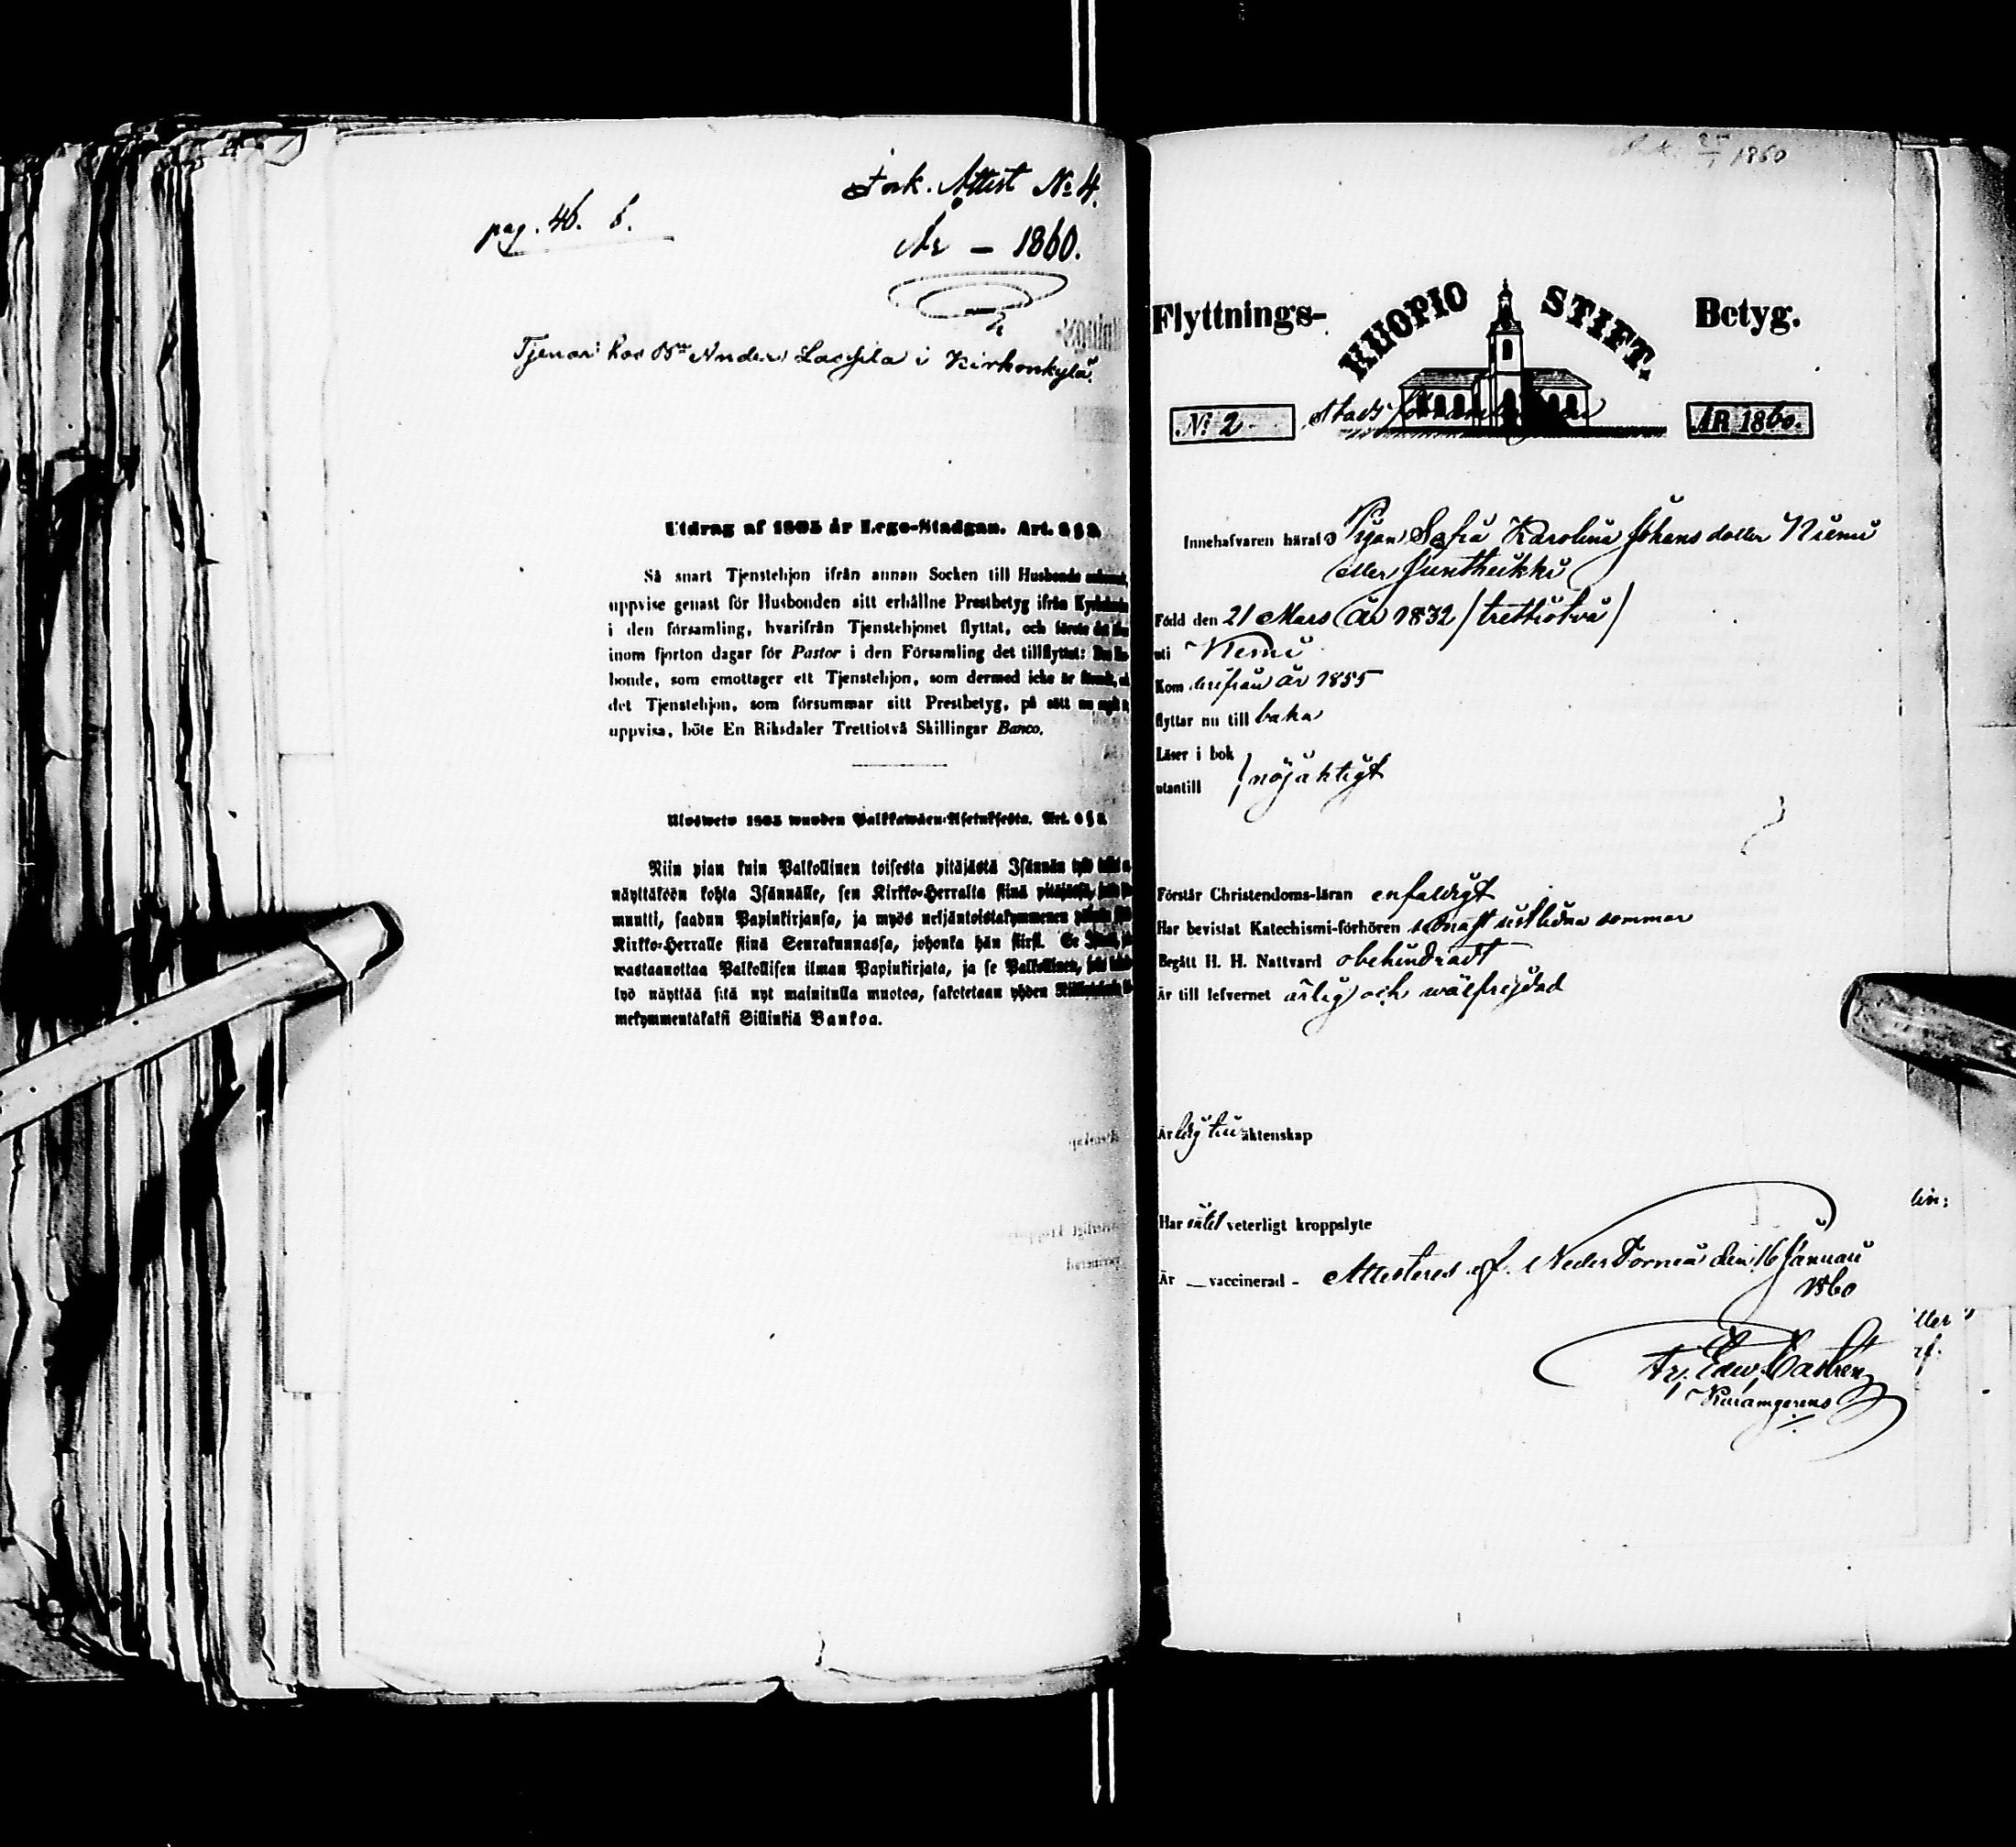 pag. 46. b.
Ink. Attest № 4.
År – 1860.
Tjenar hos Bn Anders Lassila i Kirkonkylä.
Utdrag af 1805 år Lego-Stadgan. Art. 6 § 2.
Så snart Tjenstehjon ifrån annan Socken till Husbonde
uppvise genast för Husbonden sitt erhållne Prestbetyg ifrån
i den församling, hvarifrån Tjenstehjonet flyttat, och
inom fjorton dagar för Pastor i den Församling det tillflyttat:
bonde, som emottager ett Tjenstehjon, som dermed icke är
det Tjenstehjon, som försummar sitt Prestbetyg, på sätt
uppvisa, böte En Riksdaler Trettiotvå Skillingar Banco.
Ulosweto 1805 wuoden Palkkawäen-Asetuksesta. Art. 6 §
Niin pian kuin Palkollinen toisesta pitäjästä Isännän
näyttäköön kohta Isännälle, sen Kirkko-Herralta siinä
muutti, saadun Papinkirjansa, ja myös neljäntoistakymmenen
Kirkko-Herralle siinä Seurakunnassa, johonka hän siirsi. Se
wastaanottaa Palkollisen ilman Papinkirjata, ja se Palkollinen,
lyö näyttää sitä nyt mainitulla muotoa, sakotetaan yhden
mekymmentäkaksi Sillinkiä Bankoa.
1860
Flyttnings- KUOPIO STIFT. Betyg.
№ 2 Stadsförsamlingen ÅR 1860.
Innehafvaren häraf Pigan Sofia Karolina Johans dotter Niemi
eller Juntheikki
Född den 21 Mars år 1832 / trettiotvå /
uti Kemi
Kom derifrån år 1855
flyttar nu till baka
Läser i bok
utantill } nöjaktigt
Förstår Christendoms-läran enfaldigt
Har bevistat Katechismi-förhören sednast sistlidna sommar
Begått H. H. Nattvard obehindradt
Är till lefvernet ärlig och wälfrejdad
Är ledig till äktenskap
Har intet veterligt kroppslyte
Är — vaccinerad - Attesteras af. Neder Torneå den 16 Januari
1860
Fr. Edw. Castrén